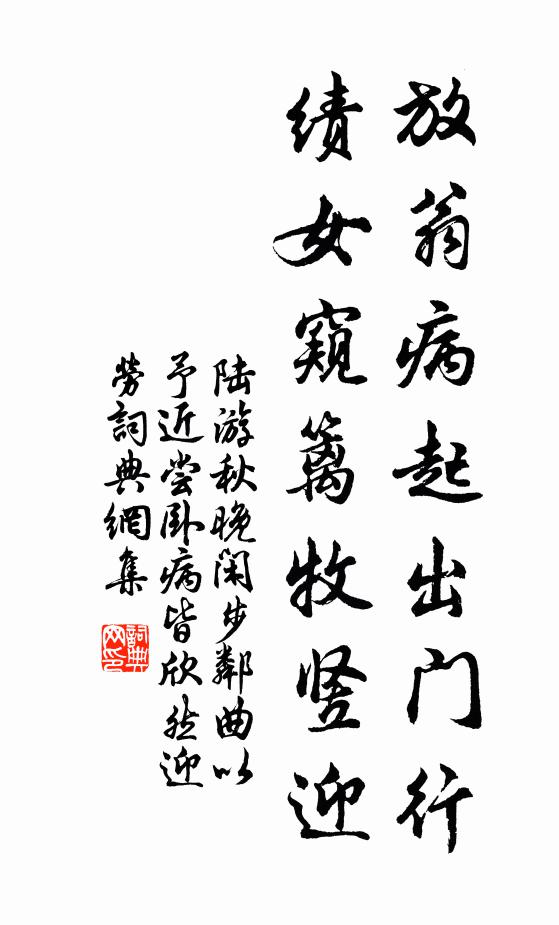 放翁病起出门行
绩女窥篱牧竖迎
陆游秋晚闲步鄰曲以
予近尝卧病皆欣然迎
劳詞典網集
詞典
网印